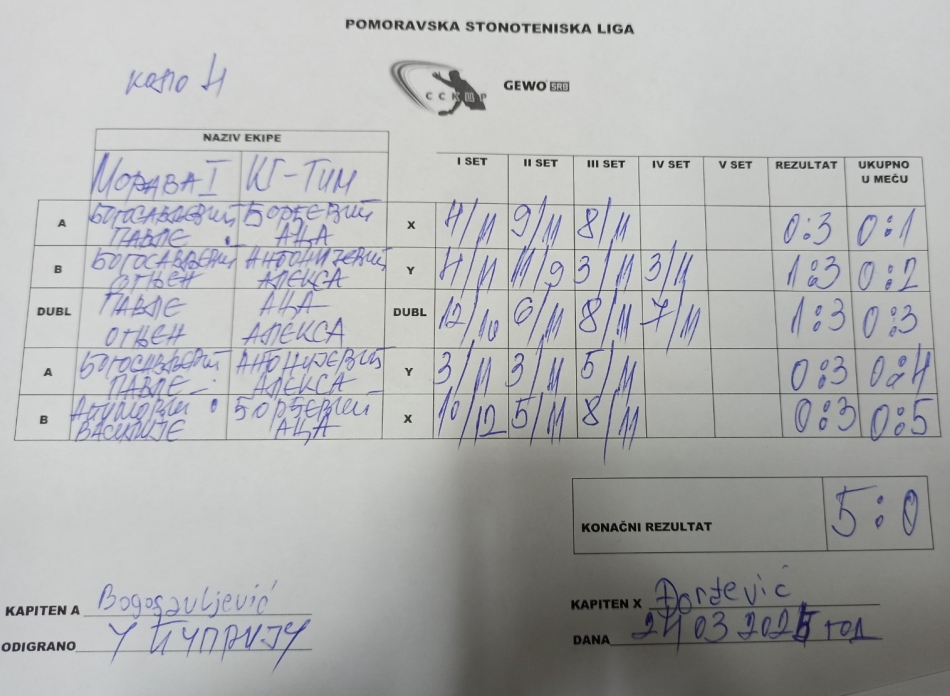 POMORAVSKA STONOTENISKA LIGA
коло 4
ССКПР GEWO SRB
NAZIV EKIPE
I SET II SET III SET IV SET V SET REZULTAT UKUPNO U MEČU
МОРАВА I КГ-ТИМ
A БОГОСАВЉЕВИЋ ПАВЛЕ ЂОРЂЕВИЋ АЦА X 4/11 9/11 8/11 0:3 0:1
B БОГОСАВЉЕВИЋ ОГЊЕН АНТОНИЈЕВИЋ АЛЕКСА Y 4/11 11/9 3/11 3/11 1:3 0:2
DUBL ПАВЛЕ ОГЊЕН АЦА АЛЕКСА DUBL 12/10 6/11 8/11 7/11 1:3 0:3
A БОГОСАВЉЕВИЋ ПАВЛЕ АНТОНИЈЕВИЋ АЛЕКСА Y 3/11 3/11 5/11 0:3 0:4
B ВАСИЛИЈЕ ЂОРЂЕВИЋ АЦА X 10/12 5/11 8/11 0:3 0:5
KONAČNI REZULTAT 5:0
KAPITEN A Bogosavljević
KAPITEN X Đorđević
ODIGRANO У ЋУПРИЈУ
DANA 24 03 2025 год